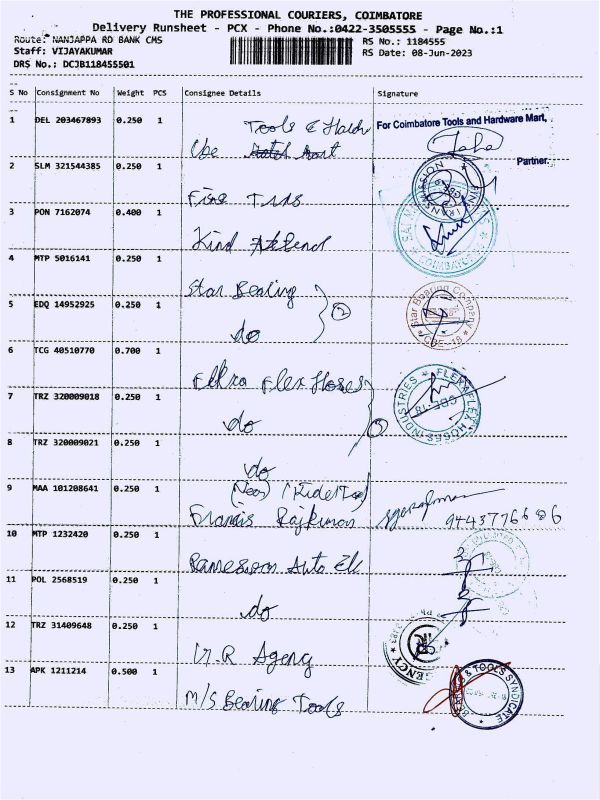 THE PROFESSIONAL COURIERS, COIMBATORE
Delivery Runsheet - PCX - Phone No.:0422-3505555 - Page No.:1
Route: NANJAPPA RD BANK CMS
RS No.: 1184555
Staff: VIJAYAKUMAR
RS Date: 08-Jun-2023
DRS No.: DCJB118455501
S No Consignment No Weight PCS Consignee Details Signature
1 DEL 203467893 0.250 1 Tools & For Coimbatore Tools and Hardware Mart,
Cbe
Partner.
2 SLM 321544385 0.250 1
Fine
3 PON 7162074 0.400 1
Kind
4 MTP 5016141 0.250 1
Star Bearing
COIMBATORE
5 EDQ 14952925 0.250 1
do
Star Bearing Company
CBE-18
6 TCG 40510770 0.700 1
Flex Hoses
7 TRZ 320009018 0.250 1
do
FLEXAFLEX HOSES INDUSTRIES
CBE-18
8 TRZ 320009021 0.250 1
do
9 MAA 101208641 0.250 1
Francis Rajkumar
10 MTP 1232420 0.250 1
Auto
11 POL 2568519 0.250 1
do
12 TRZ 31409648 0.250 1
Agency
13 APK 1211214 0.500 1
M/S Bearing Tools
& TOOLS SYNDICATE